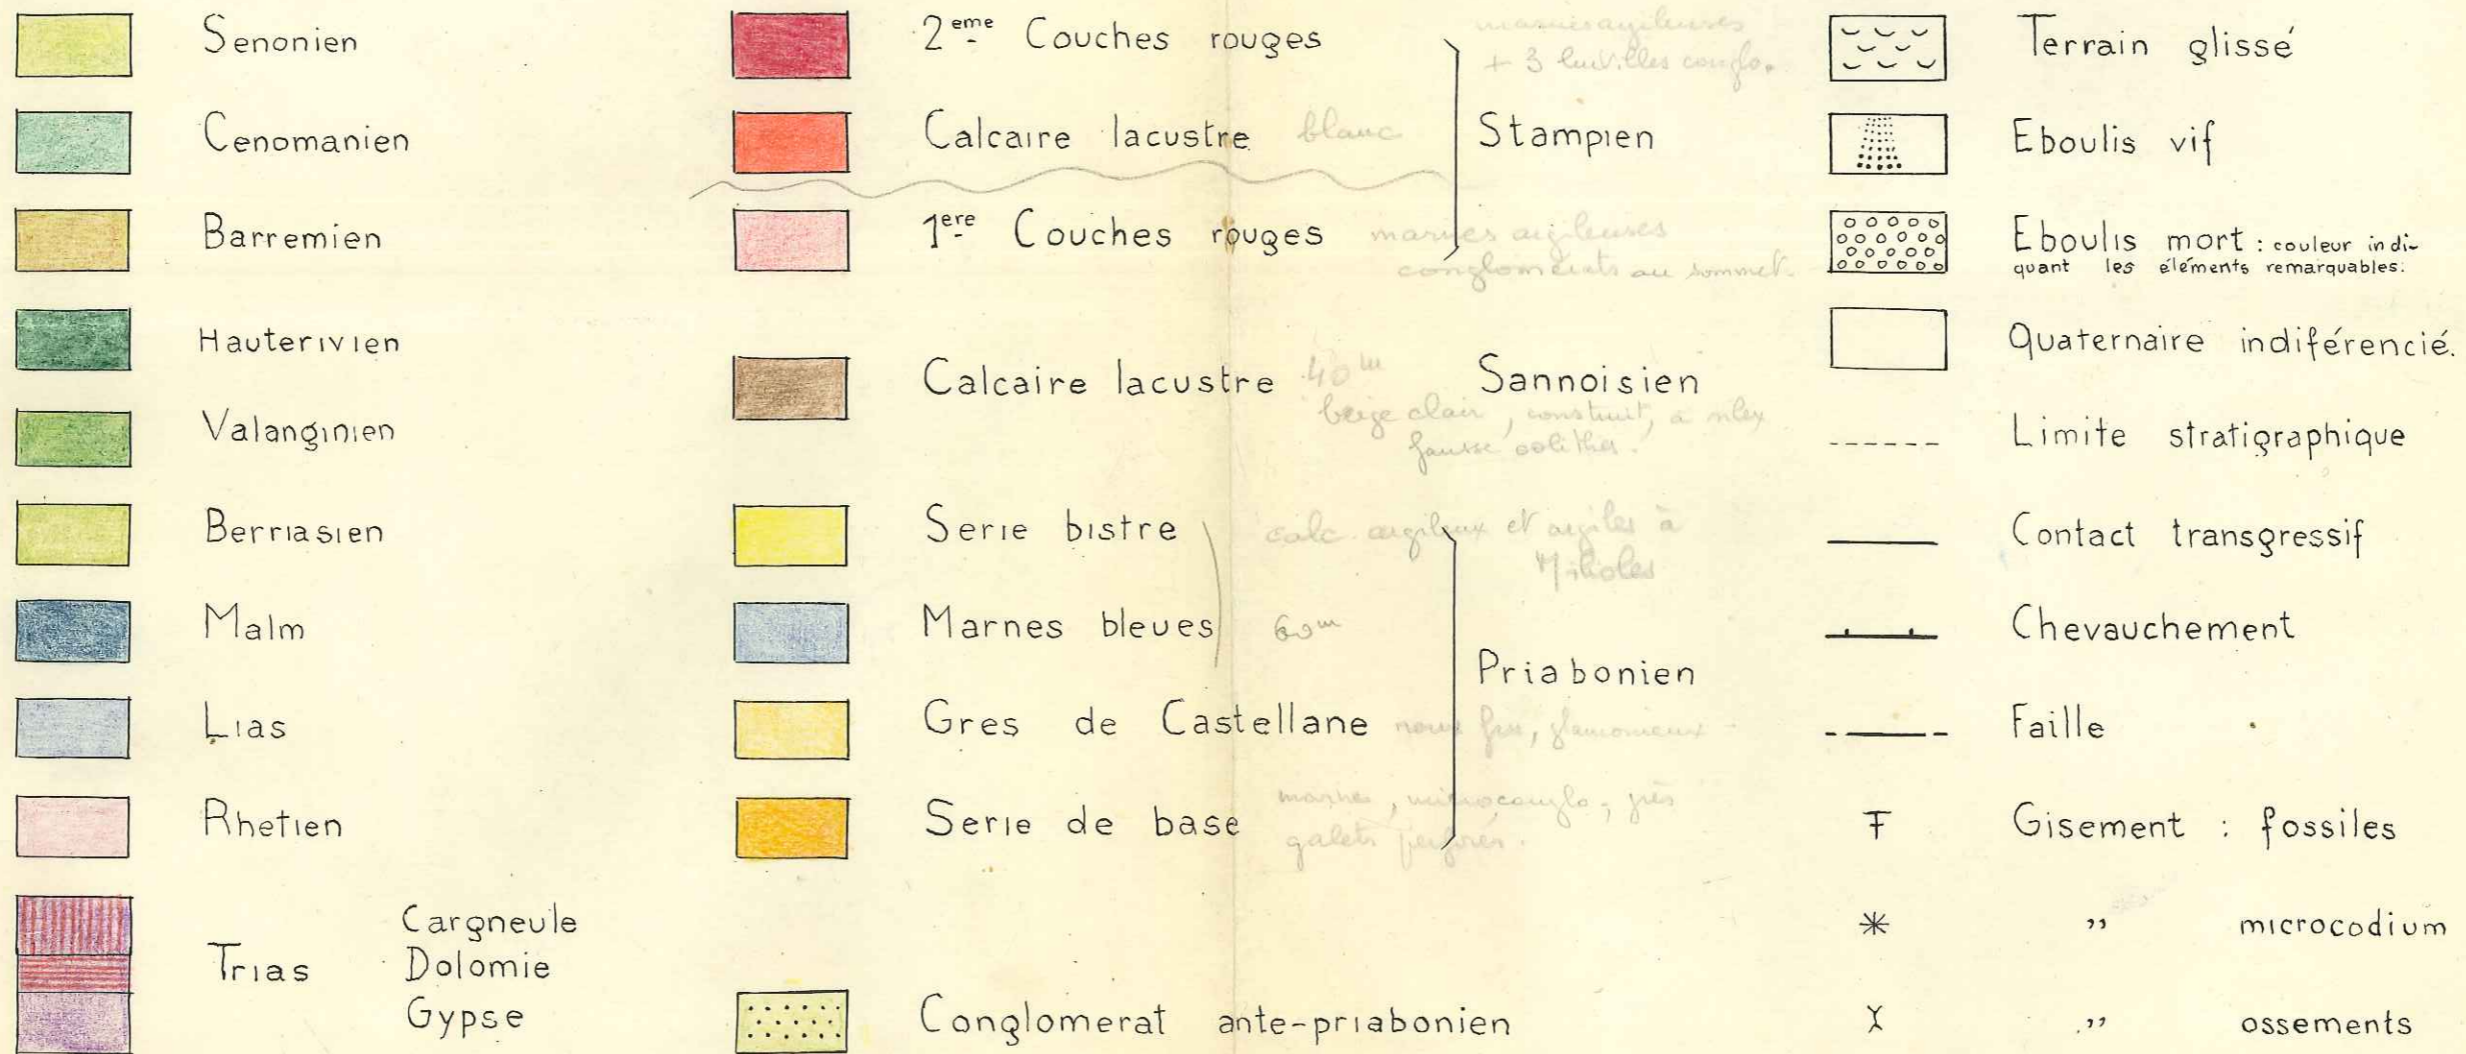 Senonien
Cenomanien
Barremien
Hauterivien
Valanginien
Berriasien
Malm
Lias
Rhetien
Trias
Cargneule
Dolomie
Gypse
2eme Couches rouges
+ 3 conglo.
Calcaire lacustre blanc
Stampien
1ere Couches rouges marnes argileuses
conglomérats au sommet.
Calcaire lacustre 40m
Sannoisien
beige clair, construit, à
fausse oolithes.
Serie bistre calc. argileux et argiles à
Milioles
Marnes bleues 60m
Priabonien
Gres de Castellane
Serie de base
marnes, microconglo, grès
galets perforés.
Conglomerat ante-priabonien
Terrain glissé
Eboulis vif
Eboulis mort : couleur indi-
quant les éléments remarquables.
Quaternaire indiférencié.
Limite stratigraphique
Contact transgressif
Chevauchement
Faille
Gisement : fossiles
,, microcodium
,, ossements